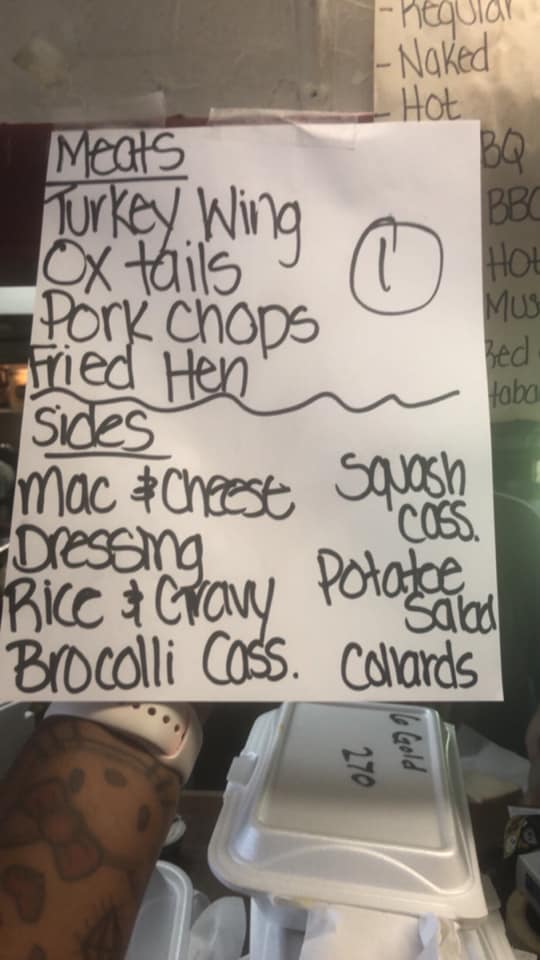 - Regular
- Naked
- Hot
BQ
BBQ
Hot
Meats
Turkey Wing
Ox tails
Pork Chops
Fried Hen
1
Sides
Mac & Cheese
Dressing
Rice & Gravy
Brocolli Cass.
Squash
Cass.
Potatoe
Salad
Collards
6 Gold
270